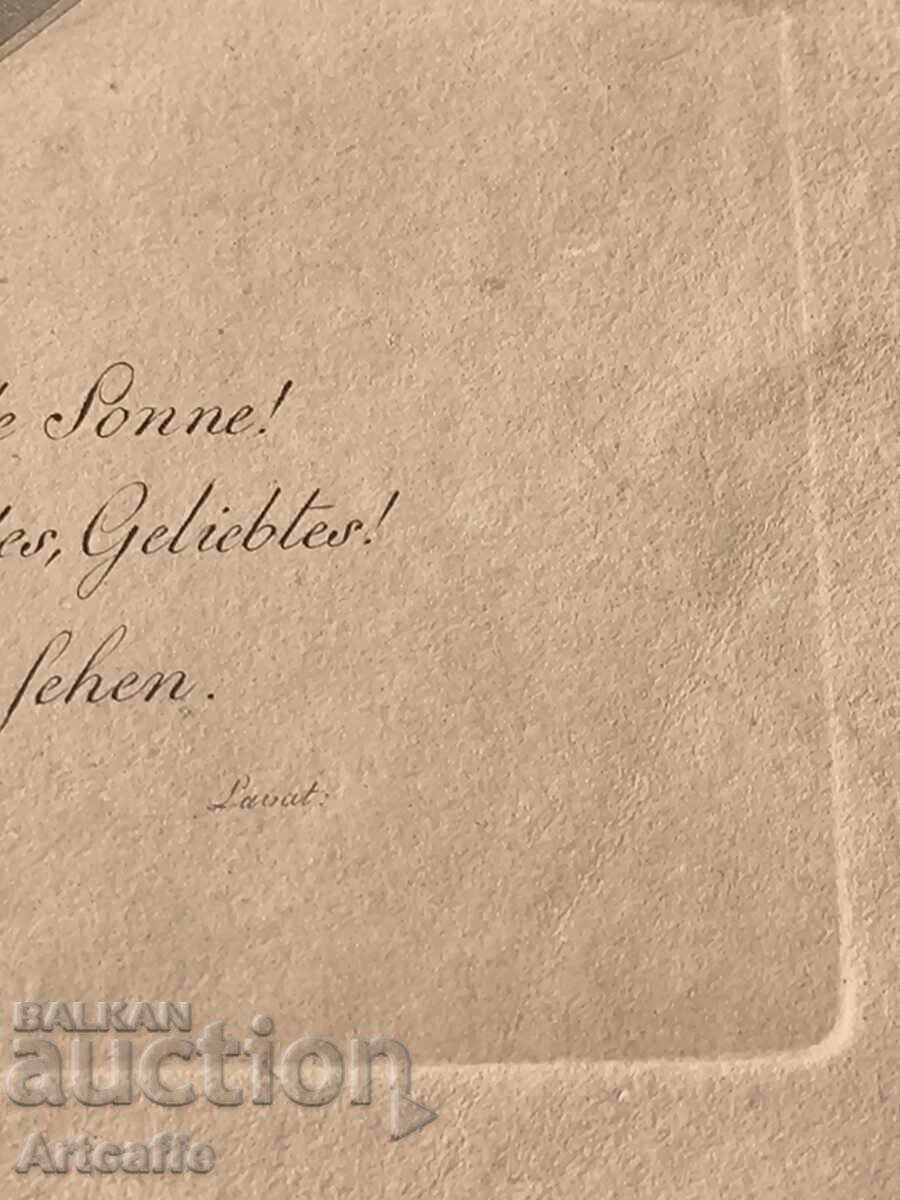 le Sonne!
tes, Geliebtes!
sehen.
Lavat:
BALKAN
auction
Artcaffe